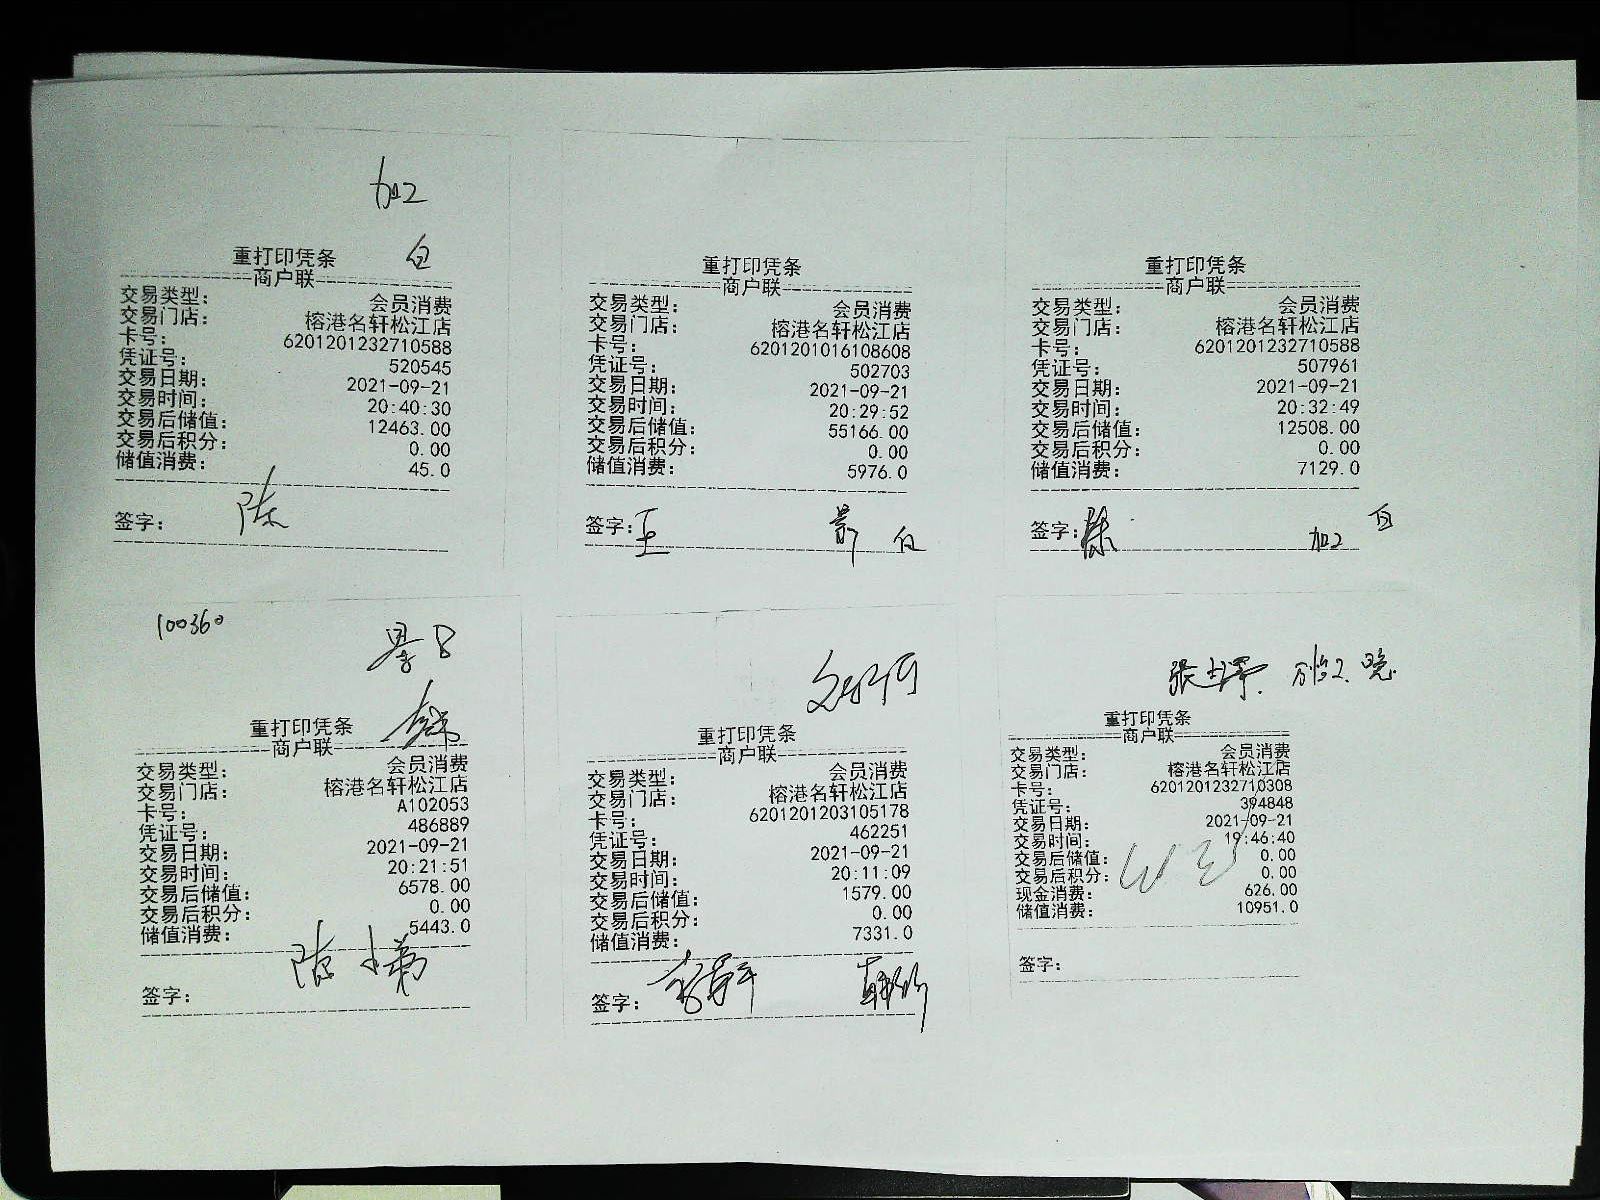 加2
白
重打印凭条
商户联
交易类型： 会员消费
交易门店： 榕港名轩松江店
卡号： 6201201232710588
凭证号： 520545
交易日期： 2021-09-21
交易时间： 20:40:30
交易后储值： 12463.00
交易后积分： 0.00
储值消费： 45.0
签字： 陈
重打印凭条
商户联
交易类型： 会员消费
交易门店： 榕港名轩松江店
卡号： 6201201016108608
凭证号： 502703
交易日期： 2021-09-21
交易时间： 20:29:52
交易后储值： 55166.00
交易后积分： 0.00
储值消费： 5976.0
签字： 王
重打印凭条
商户联
交易类型： 会员消费
交易门店： 榕港名轩松江店
卡号： 6201201232710588
凭证号： 507961
交易日期： 2021-09-21
交易时间： 20:32:49
交易后储值： 12508.00
交易后积分： 0.00
储值消费： 7129.0
签字： 加2
100360
重打印凭条
商户联
交易类型： 会员消费
交易门店： 榕港名轩松江店
卡号： A102053
凭证号： 486889
交易日期： 2021-09-21
交易时间： 20:21:51
交易后储值： 6578.00
交易后积分： 0.00
储值消费： 5443.0
签字： 陈
重打印凭条
商户联
交易类型： 会员消费
交易门店： 榕港名轩松江店
卡号： 6201201203105178
凭证号： 462251
交易日期： 2021-09-21
交易时间： 20:11:09
交易后储值： 1579.00
交易后积分： 0.00
储值消费： 7331.0
签字：
张
重打印凭条
商户联
交易类型： 会员消费
交易门店： 榕港名轩松江店
卡号： 6201201232710308
凭证号： 394848
交易日期： 2021-09-21
交易时间： 19:46:40
交易后储值： 0.00
交易后积分： 0.00
现金消费： 626.00
储值消费： 10951.0
签字：